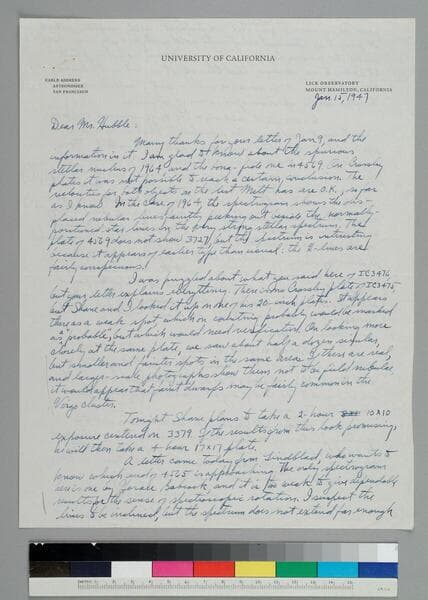 UNIVERSITY OF CALIFORNIA
CABLE ADDRESS
ASTRONOMER
SAN FRANCISCO
LICK OBSERVATORY
MOUNT HAMILTON, CALIFORNIA
Jan. 15, 1947
Dear Mr. Hubble:
Many thanks for your letter of Jan. 9, and the
information in it. I am glad to know about the spurious
stellar nucleus of 1964 and the one-sided one in 4569. On Crossley
plates it was not possible to reach a certain conclusion. The
velocities for both objects in the list Milt has are O.K., so far
as I know. In the case of 1964, the spectrogram shows the dis-
placed nebular lines faintly peeking out beside the normally-
positioned star lines by the very strong stellar spectrum. The
plate of 4569 does not show 3727, but the spectrum is interesting
because it appears of earlier type than usual: the lines are
fairly conspicuous!
I was puzzled about what you said here of IC3476
but your letter explains everything. There is no Crossley plate of IC3475,
but Shane and I looked it up on one of his 20-inch plates. It appears
there as a weak spot which on counting probably would be marked
as "probable", but which would need verification. On looking more
closely at the same plate, we saw about half a dozen similar,
but smaller and fainter spots in the same area. If these are real,
and larger-scale photographs show them not to be field nebulae,
it would appear that faint dwarfs may be fairly common in the
Virgo cluster.
Tonight Shane plans to take a 2-hour 10x10
exposure centered on 3379. If the results from this look promising,
he will then take a 4-hour 17x17 plate.
A letter came today from Lindblad, who wants to
know which end of 4565 is approaching. The only spectrogram
here is one by Horace Babcock and it is too weak to give dependable
results for the sense of spectroscopic rotation. I suspect the
lines to be inclined, but the spectrum does not extend far enough